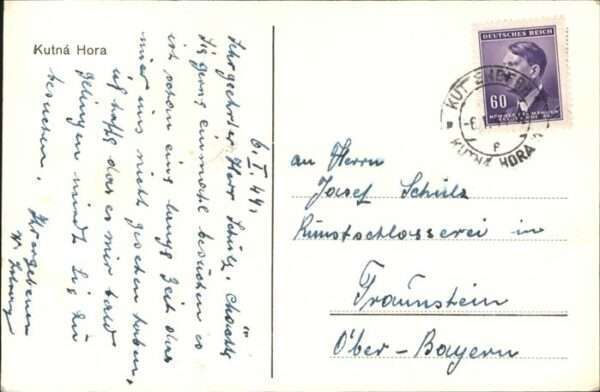 Kutná Hora
6. I. 44.
Sehrgeehrter Herr Schülz. Chöchte
Sie gerne einmahl besuchen es
ist schon eine lange Zeit das
mier uns nicht gesehen haben,
ich hoffe das es mir bald
gelingen wierdt Sie zu
besuchen.
Ihrergebener
DEUTSCHES REICH
60
BÖHMEN UND MÄHREN
KUTTENBERG
KUTNÁ HORA
an Herrn
Josef Schülz
Kunstschlosserei in
Traunstein
Ober-Bayern